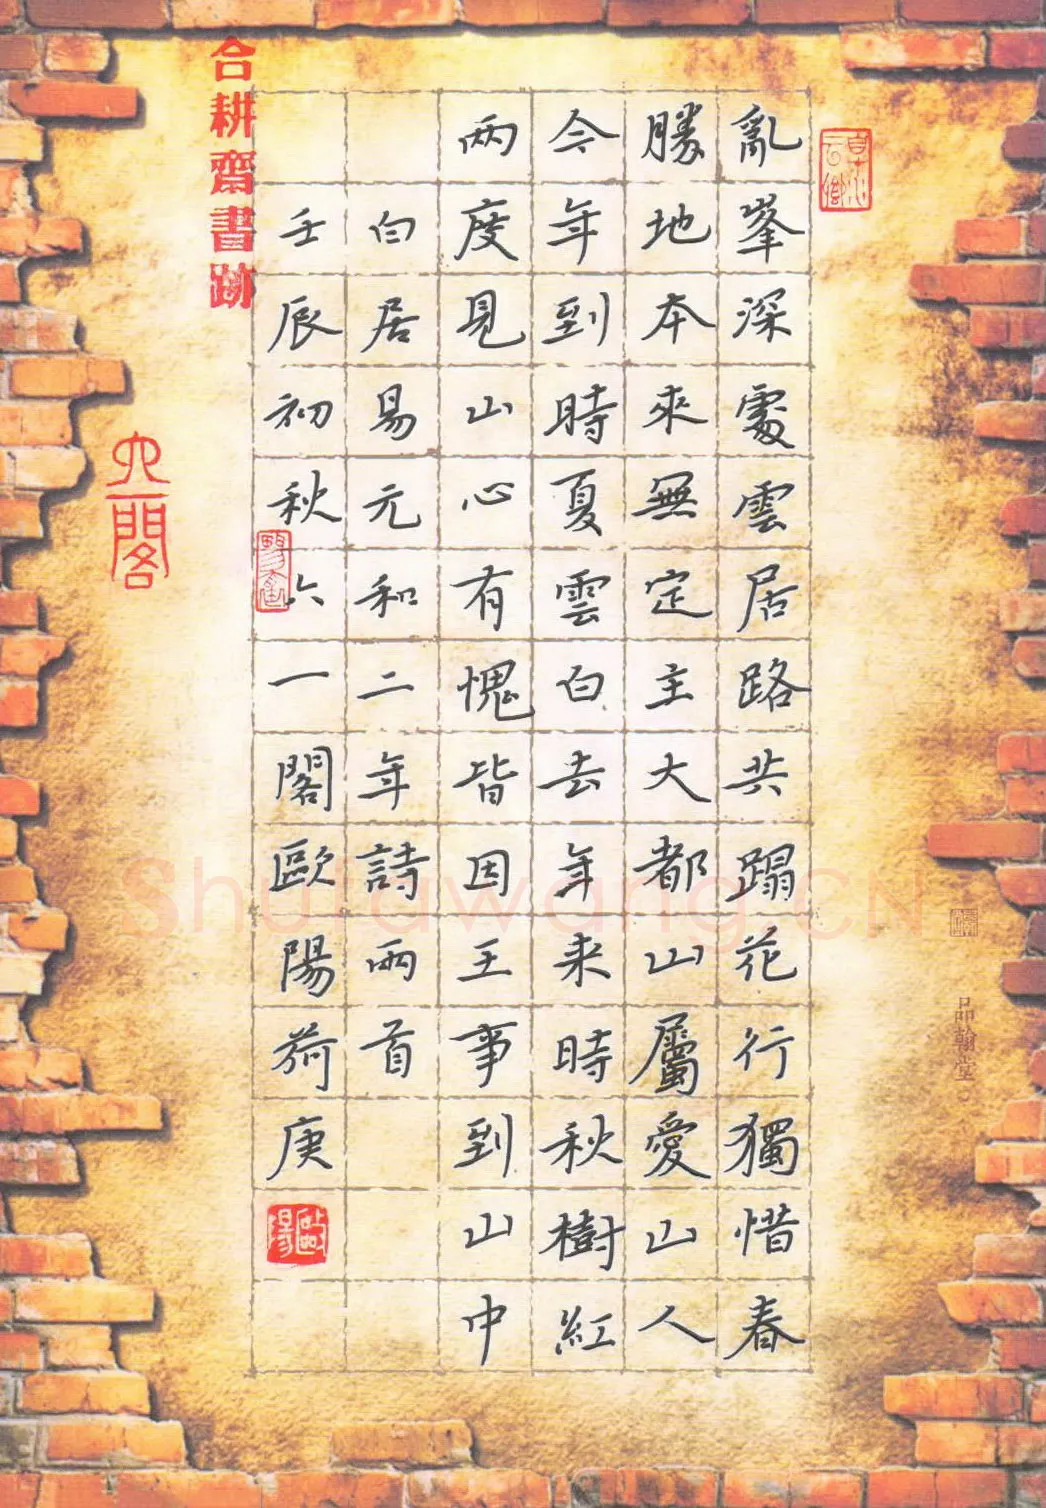 亂峯深處雲居路共蹋花行獨惜春
勝地本來無定主大都山屬愛山人
今年到時夏雲白去年来時秋樹紅
兩度見山心有愧皆因王事到山中
白居易元和二年詩兩首
壬辰初秋六一閣歐陽荷庚
合耕齋書跡
六一閣
歐陽
品翰堂
Shufawang.CN